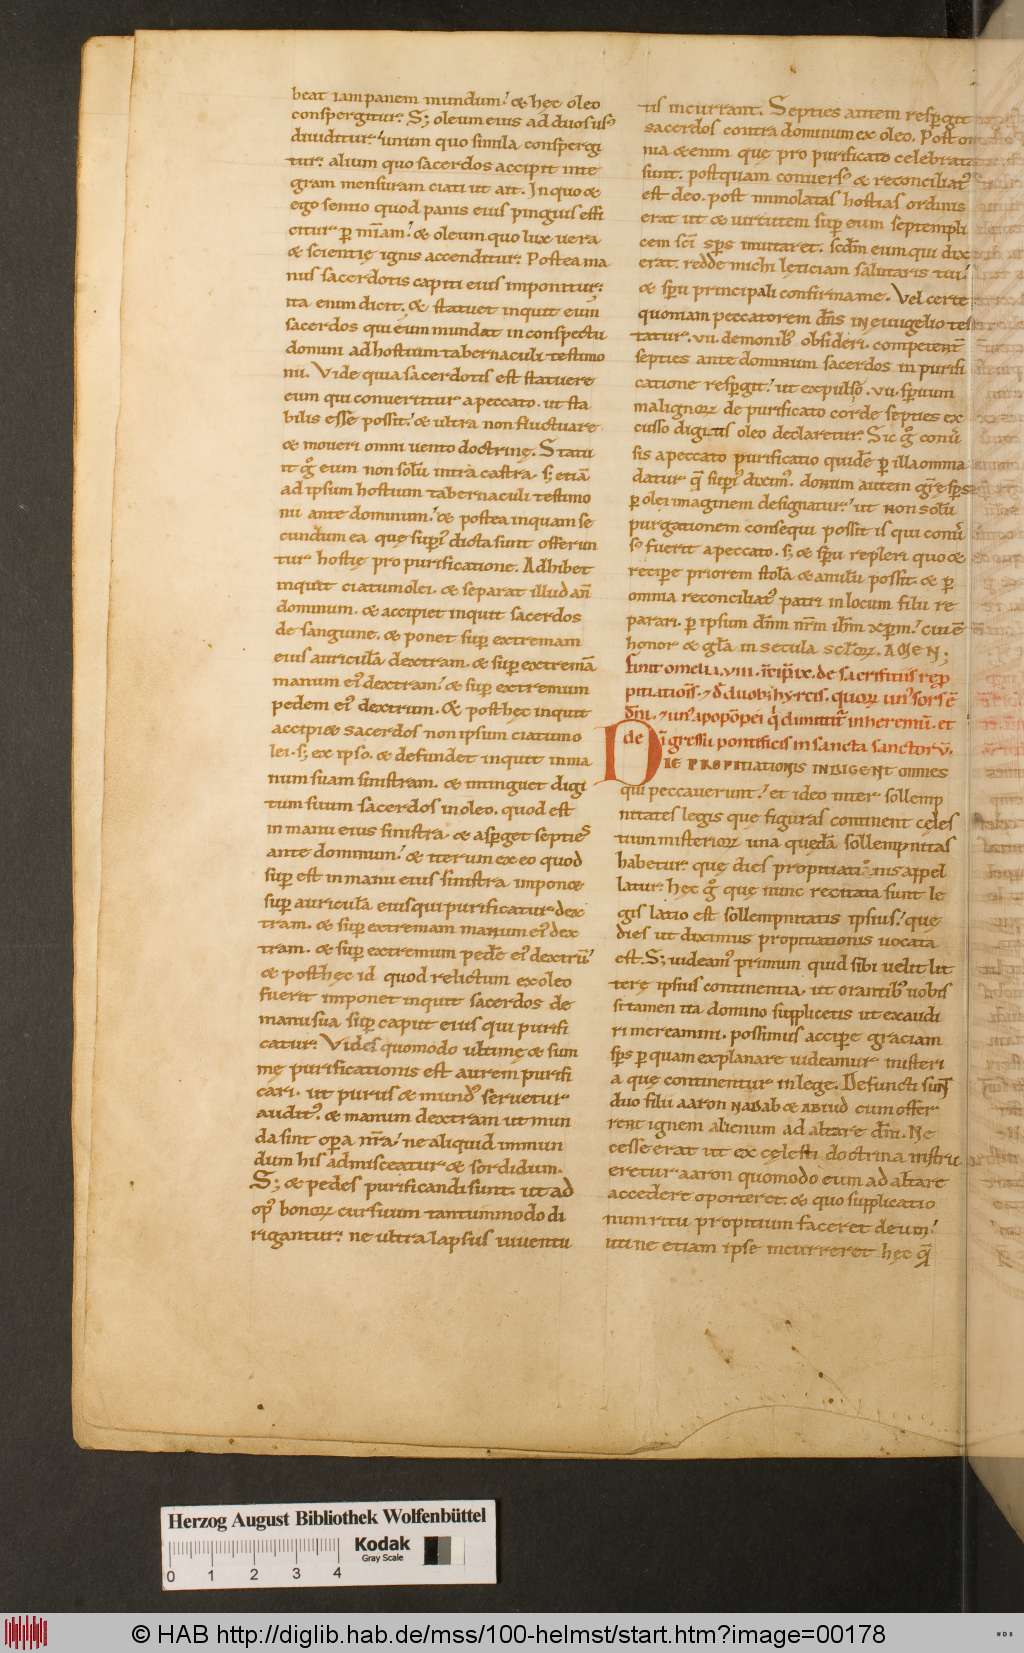 beat iam panem mundum. & hęc oleo
conspergitur. S; oleum eius ad duos us᷒
diuiditur. unum quo simila conspergi
tur. alium quo sacerdos accipit inte
gram mensuram ciati ut ait. In quo &
ego sentio quod panis eius pinguis effi
citur ꝑ mīam. & oleum quo lux uera
& scientię ignis accenditur. Postea ma
nus sacerdotis capiti eius imponitur.
ita enim dicit. & statuet inquit eum
sacerdos qui eum mundat in conspectu
domini ad hostium tabernaculi testimo
nii. Vide quia sacerdotis est statuere
eum qui conuertitur a peccato. ut sta
bilis esse possit. & ultra non fluctuare
& moueri omni uento doctrinę. Statu
it gͦ eum non solū intra castra. s; etiā
ad ipsum hostium tabernaculi testimo
nii ante dominum. & postea inquam se
cundum ea quę suꝑi᷒ dicta sunt offerun
tur hostię pro purificatione. Adhibet
inquit ciatum olei. & separat illud añ
dominum. & accipiet inquit sacerdos
de sanguine. & ponet suꝑ extremam
eius auriculā dextram. & suꝑ extremā
manum ei᷒ dextram. & suꝑ extremum
pedem ei᷒ dextrum. & post hęc inquit
accipi& sacerdos non ipsum ciatum o
lei. s; ex ipso. & defundet inquit in ma
num suam sinistram. & intinguet digi
tum suum sacerdos in oleo. quod est
in manu eius sinistra. & asꝑget septies
ante dominum. & iterum ex eo quod
suꝑ est in manu eius sinistra impon&
suꝑ auriculā eius qui purificatur dex
tram. & suꝑ extremam manum ei᷒ dex
tram. & suꝑ extremum pedē ei᷒ dextrū.
& post hęc id quod relictum ex oleo
fuerit imponet inquit sacerdos de
manu sua suꝑ caput eius qui purifi
catur. Vides quomodo ultimę & sum
mę purificationis est aurem purifi
cari. ut purus & mund᷒ seruetur
audit᷒. & manum dextram ut mun
da sint oꝑa nr̄a. ne aliquid inmun
dum his admisceatur & sordidum.
S; & pedes purificandi sunt. ut ad
op᷒ bonoꝝ cursuum tantummodo di
rigantur. ne ultra lapsus iuuentu
tis incurrant. Septies autem resꝑgit
sacerdos contra dominum ex oleo. Post om
nia &enim quę pro purificato celebrata
sunt. postquam conuers᷒ & reconciliat᷒
est deo. post immolatas hostias ordinis
erat ut & uirtutem suꝑ eum septempli
cem sc̄i sp̄s inuitaret. scd̄m eum qui dix
erat. redde michi lęticiam salutaris tui.
& sp̄u principali confirma me. Vel certe
quoniam peccatorem dn̄s in euuġelio tes
tatur .vii. demonib᷒ obsideri. competenť
septies ante dominum sacerdos in purifi
catione resꝑgit. ut expulsio .vii. sp̄uum
malignoꝝ de purificato corde septies ex
cusso digitis oleo declaretur. Sic gͦ conu̓
sis a peccato purificatio quidē ꝑ illa omnia
datur quę̄ suꝑi᷒ dixim᷒. donum autem gr̄ę sp̄s
ꝑ olei imaginem designatur. ut non solū
purgationem consequi possit is qui conu̓
s᷒ fuerit a peccato. s; & sp̄u repleri quo &
recipe priorem stolā & anulū possit. & ꝑ
omnia reconciliat᷒ patri in locum filii re
parari. ꝑ ipsum dn̄m nr̄m ih̄m xp̄m. cui ē
honor & gl̄a in secula scl̄oꝝ. AMEN;
finit omelia .viii. īcip̄ .ix. de sacrificiis rep̄
pitiatiōis. & d̄ duob; hyrcis. quoꝝ un᷒ sors ē
dn̄i. & un᷒ apopōpei q̇ dimittiť in heremū. et
de īgressu pontificis in sancta sanctorū.
DIE PROPITIATIONIS INDIGENT omnes
qui peccauerunt. et ideo inter sollemp
nitates legis que figuras continent celes
tium misterioꝝ una quedā sollempnitas
habetur. que dies propitiatiōnis appel
latur. hęc gͦ quę nunc recitata sunt le
gis latio est sollempnitatis ipsius. quę
dies ut diximus propitiationis uocata
est. S; uideam᷒ primum quid sibi uelit lit
terę ipsius continentia. ut orantib᷒ uobis
si tamen ita domino supplicetis ut exaudi
ri mereamini. possimus accipe graciam
sp̄s ꝑ quam explanare uideamur misteri
a quę continentur in lege. Defuncti sunt
duo filii aaron NADab & ABIUD cum offer
rent ignem alienum ad altare dn̄i. Ne
cesse erat ut ex cęlesti doctrina instru
eretur aaron quomodo eum ad altare
accedere oporteret. & quo supplicatio
num ritu propitium faceret deum.
uti ne etiam ipse incurreret hęc quę̄
Herzog August Bibliothek Wolfenbüttel
Kodak
Gray Scale
0 1 2 3 4
© HAB http://diglib.hab.de/mss/100-helmst/start.htm?image=00178